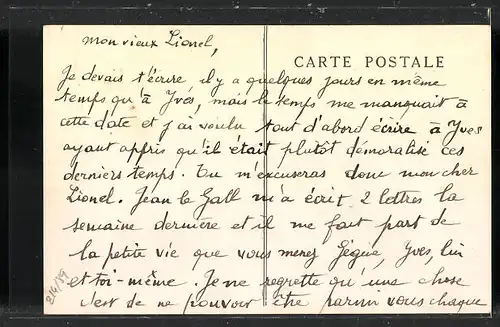 mon vieux Lionel,
CARTE POSTALE
Je devais t'écrire il y a quelques jours en même
temps qu'à Yves, mais le temps me manquait à
cette date et j'ai voulu tout d'abord écrire à Yves
ayant appris qu'il était plutôt démoralisé ces
derniers temps. Tu m'excuseras donc mon cher
Lionel. Jean le Gall m'a écrit 2 lettres la
semaine dernière et il me fait part de
la petite vie que vous menez Gégué, Yves, lui
et toi-même. Je ne regrette qu'une chose
c'est de ne pouvoir être parmi vous chaque